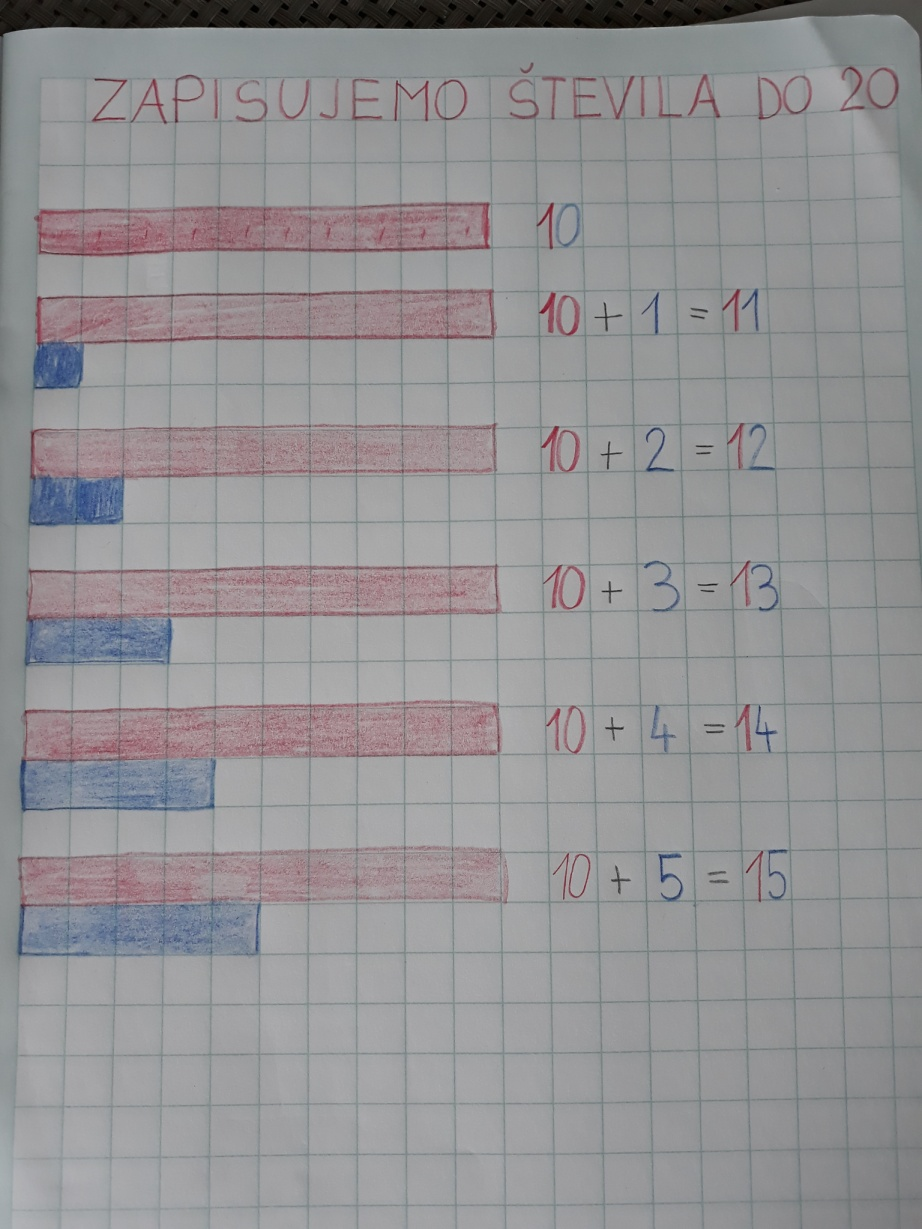 ZAPISUJEMO ŠTEVILA DO 20
10
10 + 1 = 11
10 + 2 = 12
10 + 3 = 13
10 + 4 = 14
10 + 5 = 15